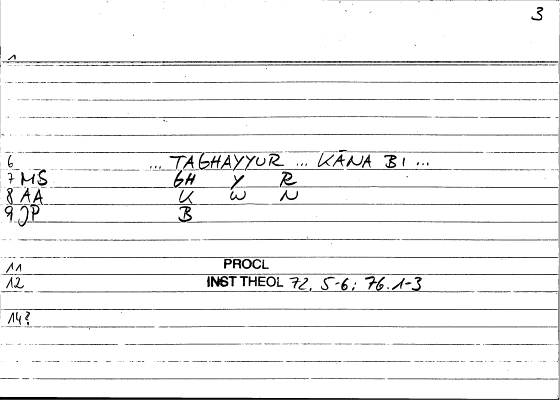 3
1
6 ... TAGHAYYUR ... KĀNA BI ...
7 MS GH Y R
8 AA K W N
9 JP B
11 PROCL
12 INST THEOL 72, 5-6; 76.1-3
14?